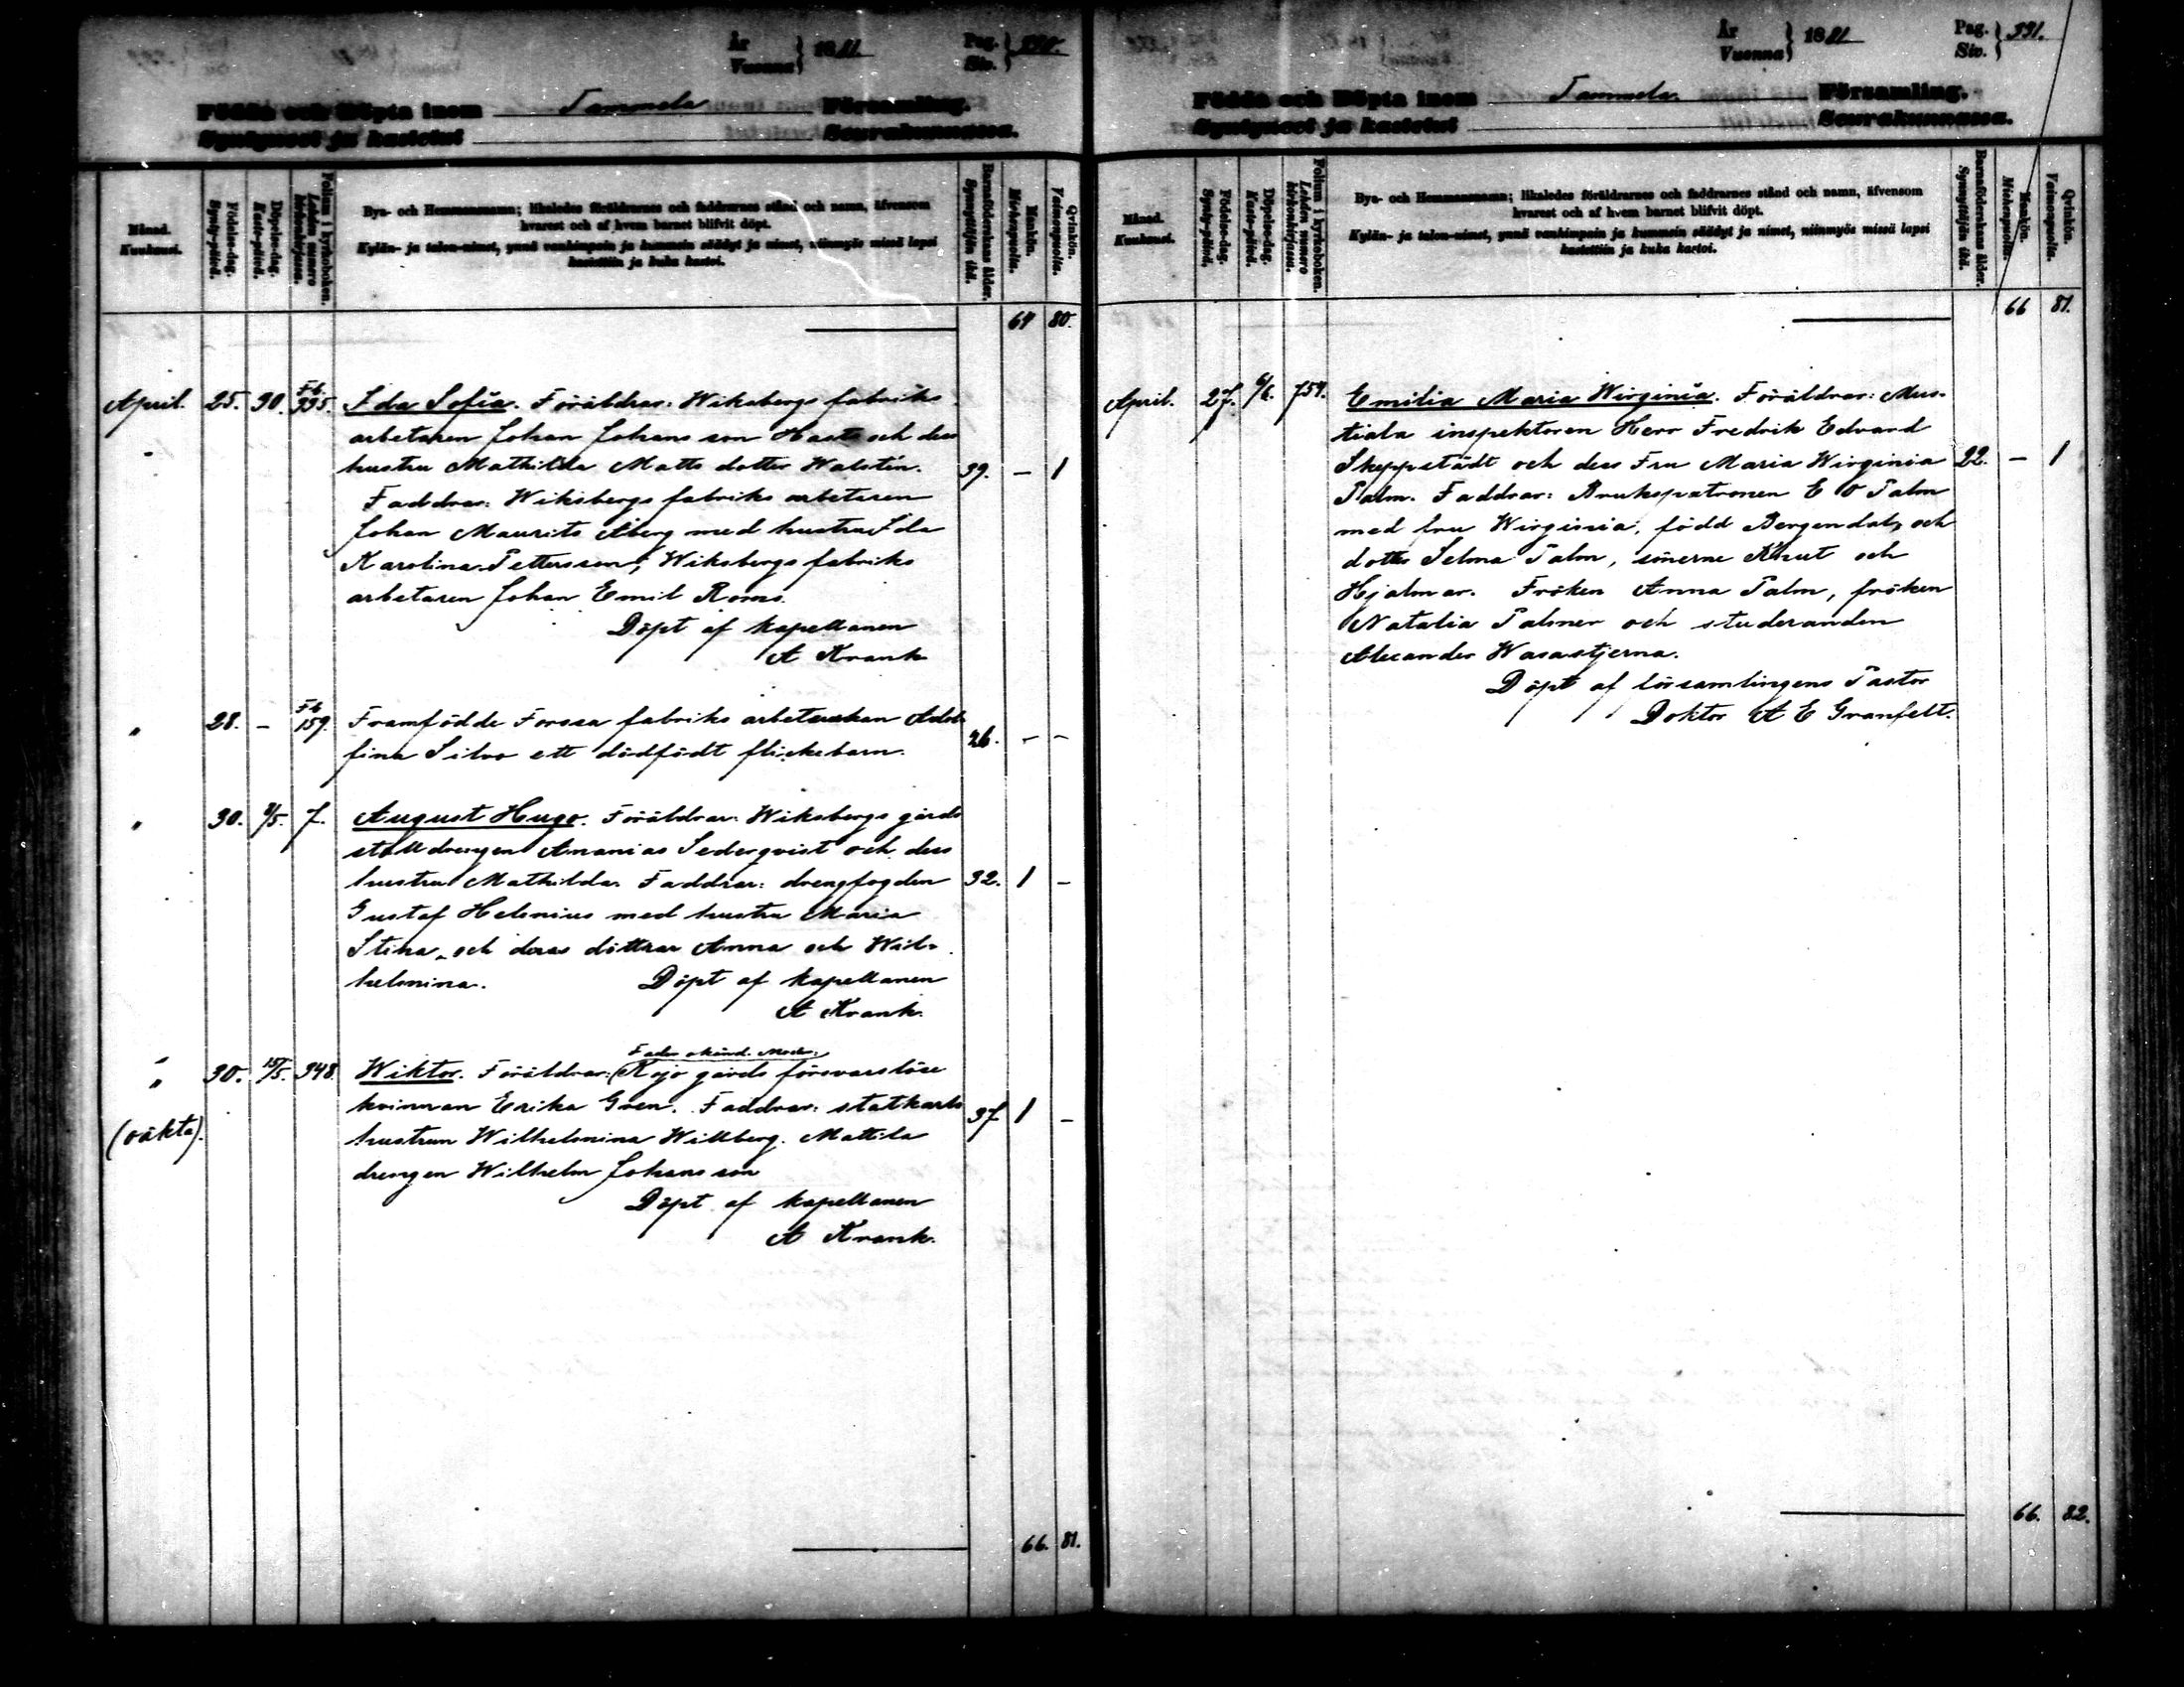 År
Vuonna } 1881
Pag.
Siv. } 330.
Födda och Döpta inom Tammela Församling.
Syntyneet ja kastetut Seurakunnassa.
Månad.
Kuukausi.
Födelse-dag.
Synty-päivä.
Döpelse-dag.
Kaste-päivä.
Folium i kyrkoboken.
Lehden numero kirkonkirjassa.
Bya- och Hemmansnamn; likaledes föräldrarnes och faddrarnes stånd och namn, äfvensom
kvarest och af hvem barnet blifvit döpt.
Kylän- ja talon-nimet, ynnä vanhimpain ja kummein säädyt ja nimet, niinmyös missä lapsi
kastettiin ja kuka kastoi.
Barnföderskans ålder.
Synnyttäjän ikä.
Mankön.
Miehenpuolia.
Qvinkön.
Vaimonpuolia.
64 80.
April. 25. 30. Fb. 335. Ida Sofia. Föräldrar: Wiksbergs fabriks
arbetaren Johan Johans son Hast och dess
hustru Mathilda Matts dotter Walstén. 39. — 1
Faddrar: Wiksbergs fabriks arbetaren
Johan Maurits Åberg med hustru Ida
Karolina Pettersson; Wiksbergs fabriks
arbetaren Johan Emil Roms.
Döpt af kapellanen
A Krank
" 28. – Fb 159. Framfödde Forssa fabriks arbeterskan Adol
fina Silvo ett dödfödt flickebarn. 26. – –
" 30. 8/5. 7. August Hugo. Föräldrar: Wiksbergs gårds
stalldrengen Ananias Sederqvist och dess
hustru Mathilda. Faddrar: drengfogden 32. 1 –
Gustaf Helenius med hustru Maria
Stina, och deras döttrar Anna och Wil-
helmina. Döpt af kapellanen
A Krank.
Fader okänd. Moder:
" 30. 15/5. 348. Wiktor. Föräldrar: (Kojo gårds försvarslösa
kvinnan Erika Gren. Faddrar: statkarls 37 1 –
(oäkta). hustrun Wilhelmina Willberg. Mattila
drengen Wilhelm Johans son
Döpt af kapellanen
A Krank.
66. 81.
År
Vuonna } 1881
Pag.
Siv. } 331.
Födda och Döpta inom Tammela Församling.
Syntyneet ja kastetut Seurakunnassa.
Månad.
Kuukausi.
Födelse-dag.
Synty-päivä.
Döpelse-dag.
Kaste-päivä.
Folium i kyrkoboken.
Lehden numero kirkonkirjassa.
Bya- och Hemmansnamn; likaledes föräldrarnes och faddrarnes stånd och namn, äfvensom
kvarest och af hvem barnet blifvit döpt.
Kylän- ja talon-nimet, ynnä vanhimpain ja kummein säädyt ja nimet, niinmyös missä lapsi
kastettiin ja kuka kastoi.
Barnföderskans ålder.
Synnyttäjän ikä.
Mankön.
Miehenpuolia.
Qvinkön.
Vaimonpuolia.
66 81.
April. 27. 6/6. 754. Emilia Maria Wirginia. Föräldrar: Mus-
tiala inspektoren Herr Fredrik Edvard
Skeppstädt och dess Fru Maria Wirginia 22. — 1
Palm. Faddrar: Brukspatronen E O Palm
med fru Wirginia, född Bergendal, och
dotter Selma Palm, sönerne Knut och
Hjalmar. Fröken Anna Palm, fröken
Natalia Palmer och studeranden
Alexander Wasastjerna.
Döpt af församlingens Pastor
Doktor A E Granfelt.
66. 82.